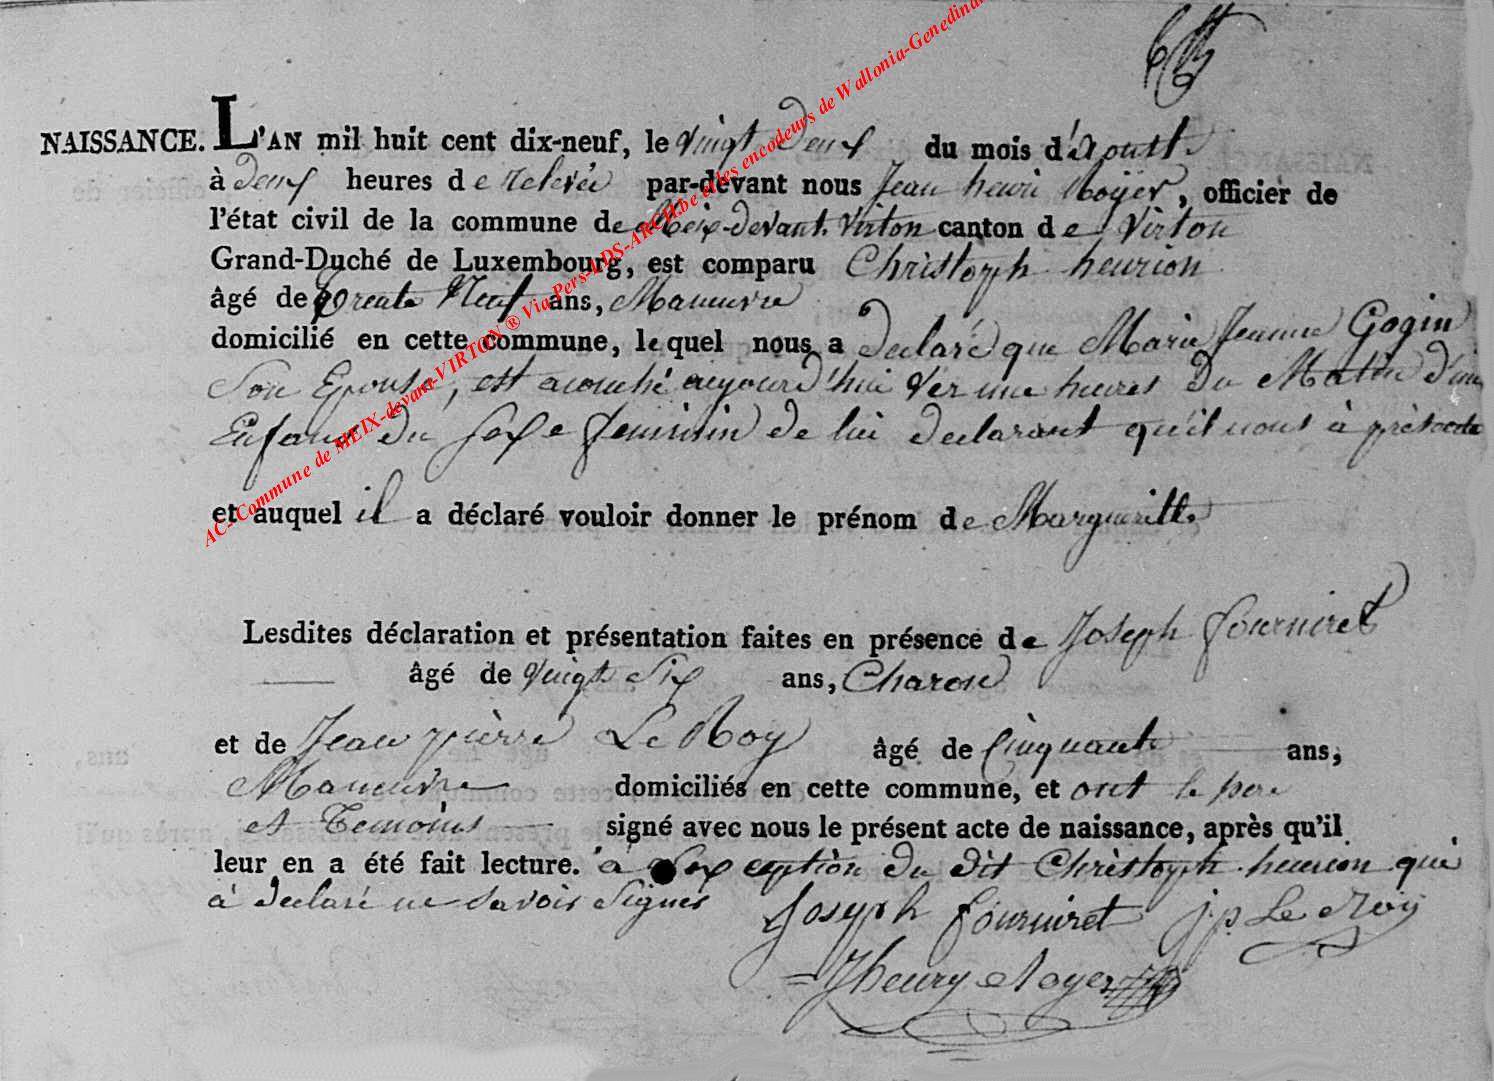 NAISSANCE. L'AN mil huit cent dix-neuf, le vingt deux du mois d'aoust
à deux heures de relevée par-devant nous Jean henri Royer, officier de
l'état civil de la commune de Meix-devant-Virton canton de Virton
Grand-Duché de Luxembourg, est comparu Christoph henrion
âgé de trente Neuf ans, Maneuvre
domicilié en cette commune, lequel nous a declaré que Marie Jeanne Gogin
Son Epouse, est acouché aujourd'hui ver une heures Du Matin d'un
Enfant du sexe feminin de lui declarant qu'il nous à présenté
et auquel il a déclaré vouloir donner le prénom de Margueritte
Lesdites déclaration et présentation faites en présence de Joseph fourniret
âgé de vingt Six ans, Charon
et de Jean pierre Le Roy âgé de Cinquante ans,
Maneuvre domiciliés en cette commune, et ont le pere
et Temoins signé avec nous le présent acte de naissance, après qu'il
leur en a été fait lecture. à exception du dit Christoph henrion qui
à declaré ne savoir Signer
Joseph fourniret j.p. Le Roy
Jhenry Royer
AC-Commune de MEIX-devant-VIRTON ® Via Pers-LDS-ARCH.be et les encodeurs de Wallonia-Genedinan